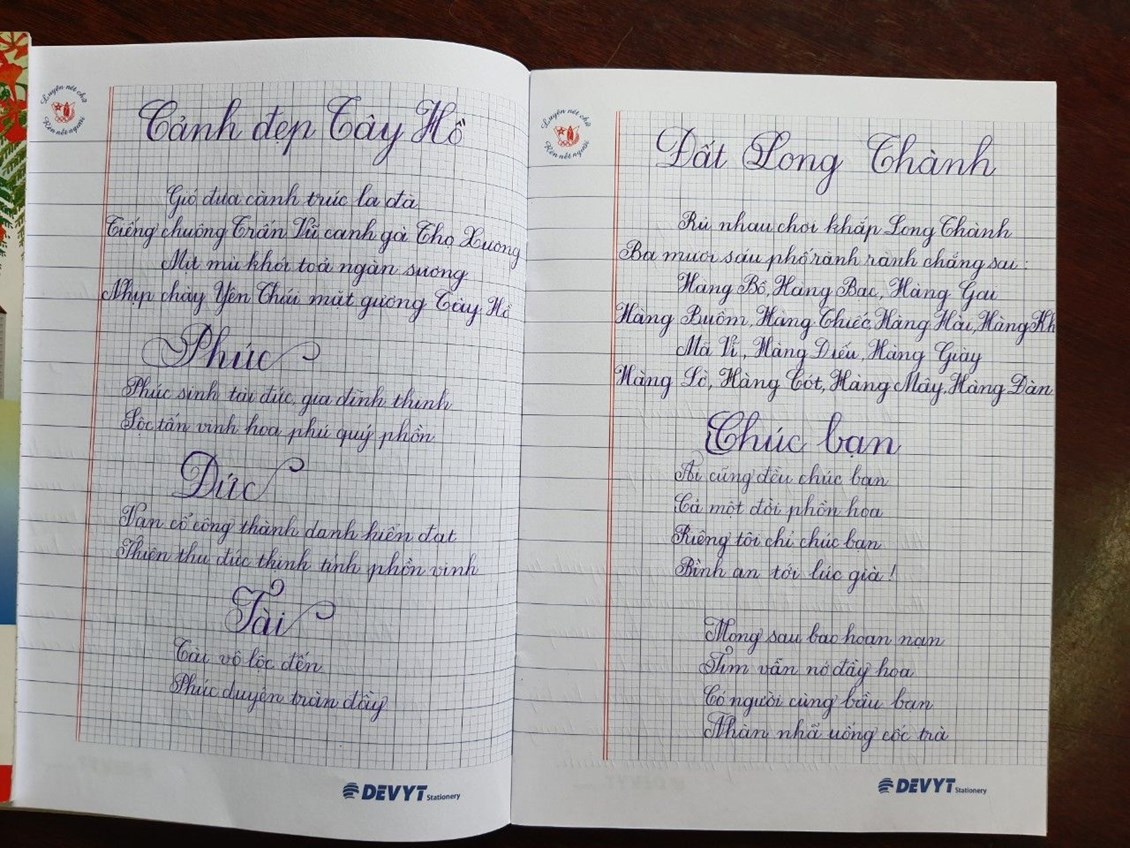 Luyện nét chữ
Rèn nết người
Cảnh đẹp Tây Hồ
Gió đưa cành trúc la đà
Tiếng chuông Trấn Vũ canh gà Thọ Xương
Mịt mù khói toả ngàn sương
Nhịp chày Yên Thái mặt gương Tây Hồ
Phúc
Phúc sinh tài đức, gia đình thịnh
Lộc tấn vinh hoa phú quý phồn
Đức
Vạn cổ công thành danh hiển đạt
Thiên thu đức thịnh tính phồn vinh
Tài
Tài vô lộc đến
Phúc duyên tràn đầy
DEVYT Stationery
Luyện nét chữ
Rèn nết người
Đất Long Thành
Rủ nhau chơi khắp Long Thành
Ba mươi sáu phố rành rành chẳng sai:
Hàng Bồ, Hàng Bạc, Hàng Gai
Hàng Buồm, Hàng Thiếc, Hàng Hài, Hàng Kh
Mã Vĩ, Hàng Điếu, Hàng Giày
Hàng Lờ, Hàng Cót, Hàng Mây, Hàng Đàn
Chúc bạn
Ai cũng đều chúc bạn
Cả một đời phồn hoa
Riêng tôi chỉ chúc bạn
Bình an tới lúc già!
Mong sau bao hoạn nạn
Tim vẫn nở đầy hoa
Có người cùng bầu bạn
Nhàn nhã uống cốc trà
DEVYT Stationery